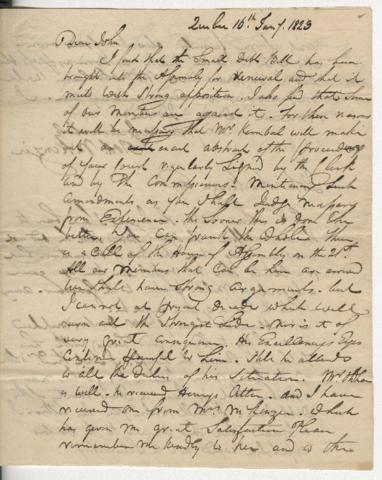 Quebec 16th Jany. 1823
Dear John
I find that the Small debt Bill has been
brought into the Assembly for renewal and that it
meets with Strong opposition. I also find that Some
of our Members are against it. For these reasons
it will be necessary that Mr Kemble will make
out an exact abstract of the proceedings
of your Court regularly Signed by the Clerk
and by the Commissioners. Mentioning Such
Amendments as you Shall Judge necessary
from Experience. the Sooner this is done the
better. You can frank the whole. There
is a Call of the House of Assembly on the 21st.
All our Members that can be here are around
we shall have Strong arguments. but
I cannot at present decide which will
turn out the Strongest Side. Nor is it of
very great consequence. His Excellencys Eyes
Continue painful to him. Still he attends
to all the Duties of his Situation. Mr
is well. he received Henrys letter. and I have
received one from Mrs McKenzie. which
has given me great Satisfaction. Please
remember me kindly to her and to the